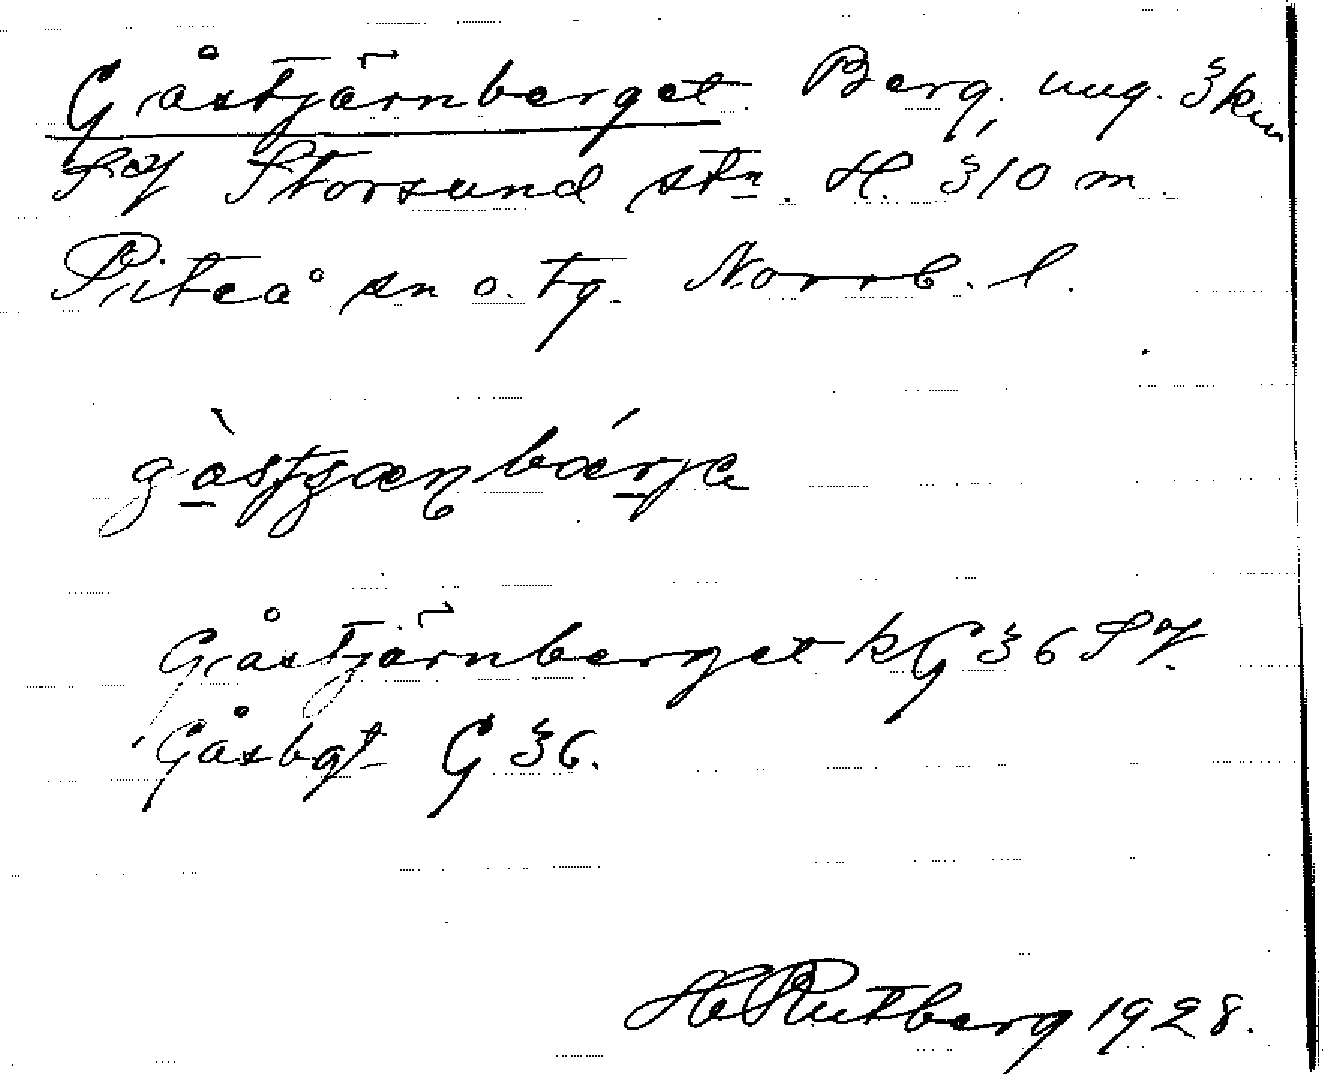 Gåstjärnberget. Berg, ung. 3 km
SV Storsund stn. H. 310 m.
Piteå sn o. tg. Norrb. l.
Gåstjärnberget kG 36 SV.
Gåsbgt G 36.
H Rutberg 1928.